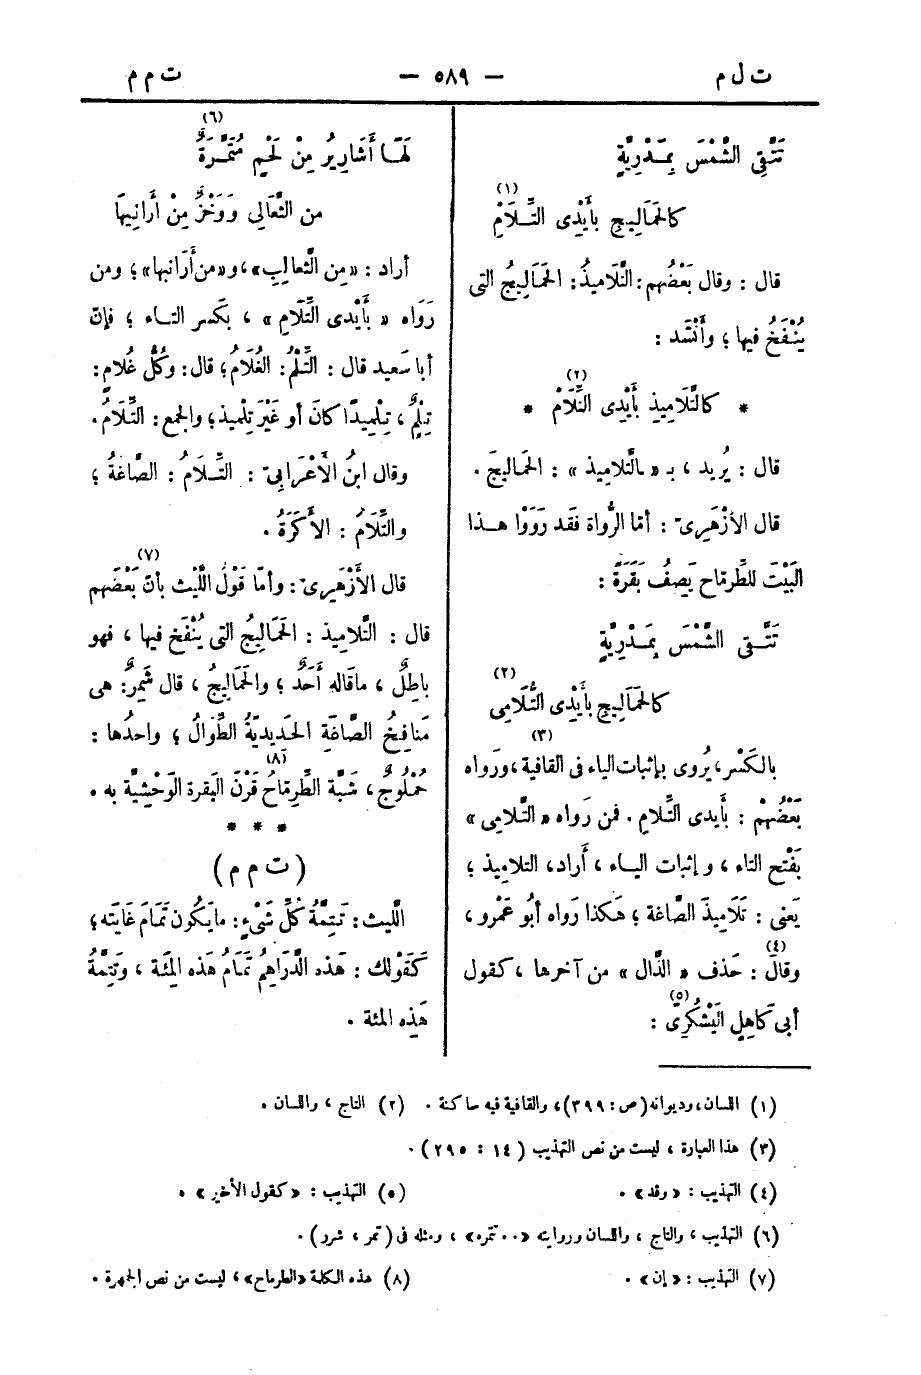 ت ل م — ٥٨٩ — ت م م
تَتَّقِى الشَّمْسَ بِمَدْرِيَّةٍ
كالحَمَالِيجِ بأَيْدِى التِّـلَامْ (١)
قال : وقال بَعْضُهم: التَّلَاميذُ: الحَمَالِيجُ التى
يُنْفَخُ فيها ؛ وأَنْشَد :
* كالتَّلَامِيذِ بأَيْدِى التِّلَامْ (٢) *
قال : يُرِيد ، بـ « بالتَّلاميذ » : الحَمالِيجَ .
قال الأزْهَرِىّ : أمّا الرُّواة فقَد رَوَوْا هـذا
البَيْتَ للطِّرمّاح يَصِفُ بَقَرَةً :
تَتَّـقِى الشَّمْسَ بِمَـدْرِيَّةٍ
كالحَمَالِيجِ بأَيْدِى التَّلَامِى (٢)
بالكَسْر، يُروى بإثبات الياء فى القافية (٣)، ورَواه
بَعْضُهمْ : بأَيدى التِّلامِ . فمن رَواه « التَّلامِى »
بفَتْح التاء ، و إثبات اليـاء ، أَراد، التلاميذ ؛
يَعنى : تَلَاميذَ الصّاغة ؛ هكذا رَواه أبُو عَمْرو ،
وقالَ (٤) : حَذف « الذّال » من آخرها ، كقول
أبى كَاهِلٍ اليَشْكُرِىّ (٥) :
لَهَـا أَشَارِيرُ مِنْ لَحْمٍ مُتَمَّـرَةٌ (٦)
من الثَّعَالِى وَوَخْزٌ مِنْ أَرَانِيهَا
أراد : «مِن الثَّعالِبِ»، و«من أَرَانبها» ؛ ومن
رَوَاه « بأَيْدى التِّلَامِ » ، بكَسر التـاء ؛ فإنّ
أبا سَعيد قال : التِّلْمُ: الغُلَامُ؛ قال: وكُلُّ غُلامٍ:
تِلْمٌ ، تِـلْمِيذًا كانَ أو غَيْرَ تِلْميذ؛ والجمع : التِّلَامُ.
وقال ابنُ الأعْرَابىّ : التِّـلَامُ : الصَّاغَةُ ؛
والتِّلَامُ : الأَكَرَةُ .
قال الأزْهَرِىّ : وأمّا قَوْلُ اللَّيْث بأنّ (٧) بَعْضَهم
قال : التَّلَاميذ : الحَمَالِيجُ التى يُنْفَخ فيها ، فهو
باطِلٌ ، ماقاله أَحَدٌ ؛ والحَمالِيجُ ، قال شَمِرٌ: هى
مَنافِخُ الصَّاغَةِ الحَديديّةُ الطِّوَالُ ؛ واحدُها :
حُمْلُوجٌ ، شَبَّهَ الطِّرِمّاحُ (٨) قَرْنَ البَقرة الوَحْشيَّة به .
* * *
(ت م م)
اللَّيث: تَـتِمَّةُ كُلِّ شَىْءٍ: ما يَكُون تَمَامَ غَايَته؛
كَقَوْلك : هذه الدَّرَاهِمُ تَمَامُ هذه المِئَة ، وتَتِمَّةُ
هَذِه المئة .
(١) اللسان، وديوانه (ص: ٣٩٩)، والقافية فيه ساكنة . (٢) التاج ، واللسان .
(٣) هذا العبارة ، ليست من نص التهذيب (١٤ : ٢٩٥) .
(٤) التهذيب : «وقد» . (٥) التهذيب : «كقول الأخير» .
(٦) التهذيب ، والتاج ، واللسان وروايته «.. تتمره» ، ومثله فى (تمر ، شرر) .
(٧) التهذيب : «إن» . (٨) هذه الكلمة «الطرماح»، ليست من نص الجمهرة .